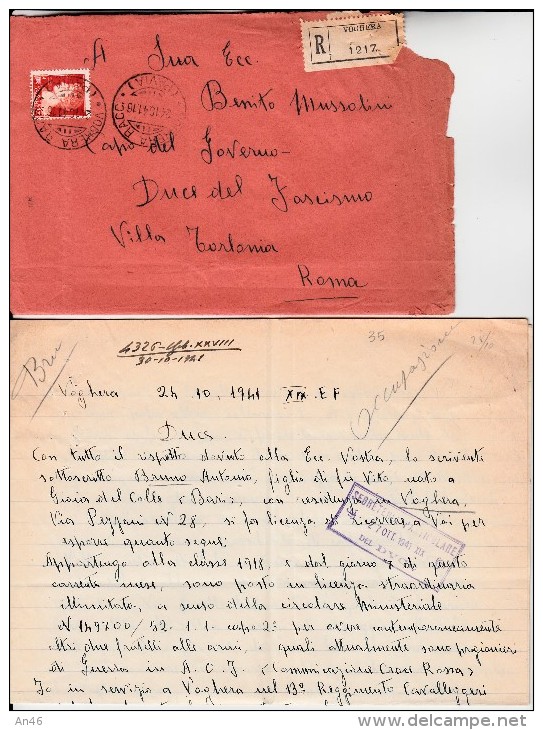 VOGHERA
R
1217
A Sua Ecc.
Benito Mussolini
Capo del Governo-
Duce del Fascismo
Villa Torlonia
Roma
4326-Gb. XXVIII
30-10-1941
35
Bru
Occupazione
Voghera 24 10, 1941 XIX. E F
Duce
Con tutto il rispetto dovuto alla Ecc. Vostra, lo scrivente
sottoscritto Bruno Antonio, figlio di fu Vito, nato a
Gioia del Colle (Bari), con residenza in Voghera,
Via Pezzani n° 28, si fa licenza di ricorrere a Voi per
esporre quanto segue:
SEGRETERIA PARTICOLARE
27 OTT. 1941 XIX
DEL DUCE
Appartengo alla classe 1918, e dal giorno 7 di questo
corrente mese, sono posto in licenza straordinaria
illimitata, a senso della circolare Ministeriale
N 149700/32.1.1. capo 2° per avere contemporaneamente
altri due fratelli alle armi, i quali attualmente sono prigionieri
di Guerra in A.O.I. (Comunicazione Croce Rossa)
Io in servizio a Voghera nel 13° Reggimento Cavalleggeri
An46
www.delcampe.net